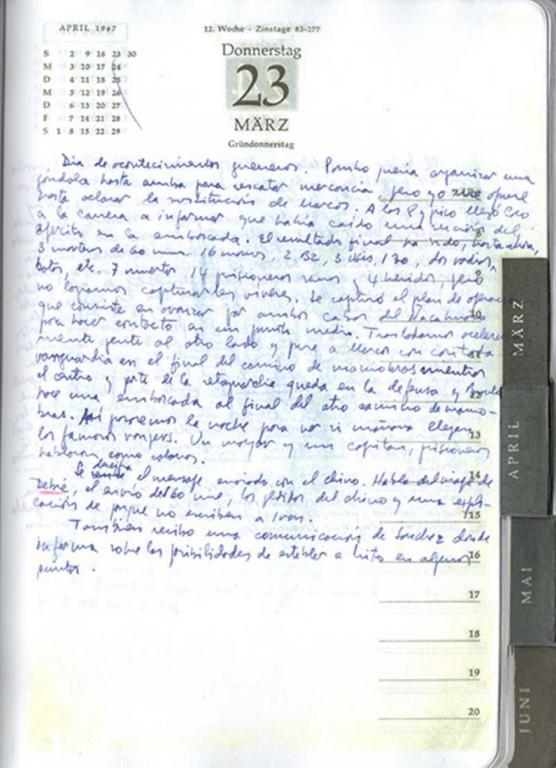 APRIL 1967
S 2 9 16 23 30
M 3 10 17 24
D 4 11 18 25
M 5 12 19 26
D 6 13 20 27
F 7 14 21 28
S 1 8 15 22 29
12. Woche · Zinstage 83-277
Donnerstag
23
MÄRZ
Gründonnerstag
Día de acontecimientos guerreros. Pombo quería organizar una
góndola hasta arriba para rescatar mercancía, pero yo me opuse
hasta aclarar la sustitución de Marcos. A las 8 y pico llegó Coco
a la carrera a informar que había caído una sección del
ejército en la emboscada. El resultado final ha sido, hasta ahora,
3 morteros de 60 mm. 16 mausers, 2 BZ, 3 Usis, 1 30, dos radios,
botas, etc. 7 muertos 14 prisioneros sanos y 4 heridos, pero
no logramos capturarles víveres. Se capturó el plan de operac
que consiste en avanzar por ambos cabos del Ñacahuasu
para hacer contacto en un punto medio. Trasladamos acelera
mente gente al otro lado y puse a Marcos con casi toda
vanguardia en el final del camino de maniobras mientras
el centro y parte de la retaguardia queda en la defensa y Braulio
hace una emboscada al final del otro camino de manio-
bras. Así pasaremos la noche para ver si mañana llegan
los famosos rangers. Un mayor y un capitan, prisioneros
hablaron como cotorras.
Se descifra el mensaje enviado con el chino. Habla del viaje de
Debré, el envío de 60 mil, los pedidos del chino y una expli-
cación de porque no escriben a Ivan.
También recibo una comunicación de Sanchez donde
informa sobre las posibilidades de establecer a Mito en algunos
puntos.
8
9
10
11
12
13
14
15
16
17
18
19
20
MÄRZ
APRIL
MAI
JUNI